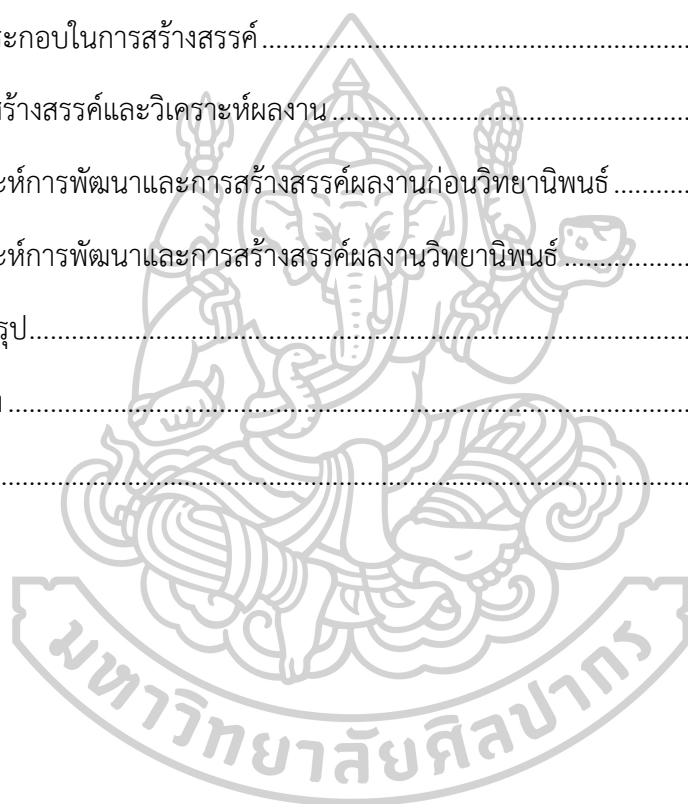 ะกอบในการสร้างสรรค์........................................................
สร้างสรรค์และวิเคราะห์ผลงาน..............................................
ะห์การพัฒนาและการสร้างสรรค์ผลงานก่อนวิทยานิพนธ์............
ะห์การพัฒนาและการสร้างสรรค์ผลงานวิทยานิพนธ์..................
รุป.......................................................................................
.........................................................................................
.........................................................................................
มหาวิทยาลัยศิลปากร